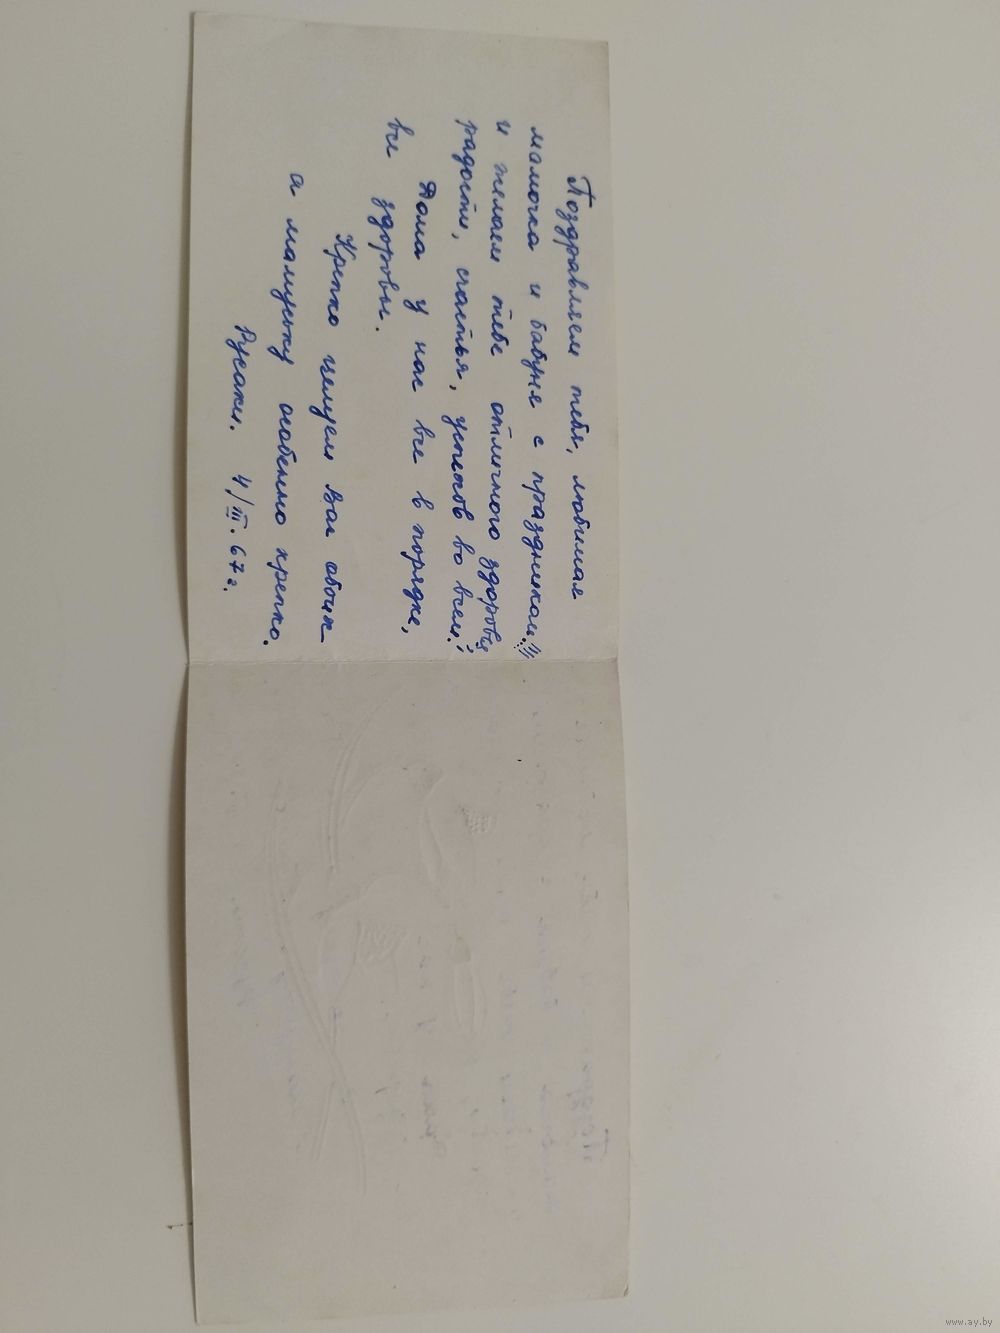 Поздравляем тебя, любимая
мамочка и бабуня с праздником!!!
и желаем тебе отличного здоровья
радости, счастья, успехов во всем!
Дома у нас все в порядке,
все здоровы.
Крепко целуем Вас обоих
а мамуську особенно крепко.
Русаки. 4/III.67г.
www.ay.by